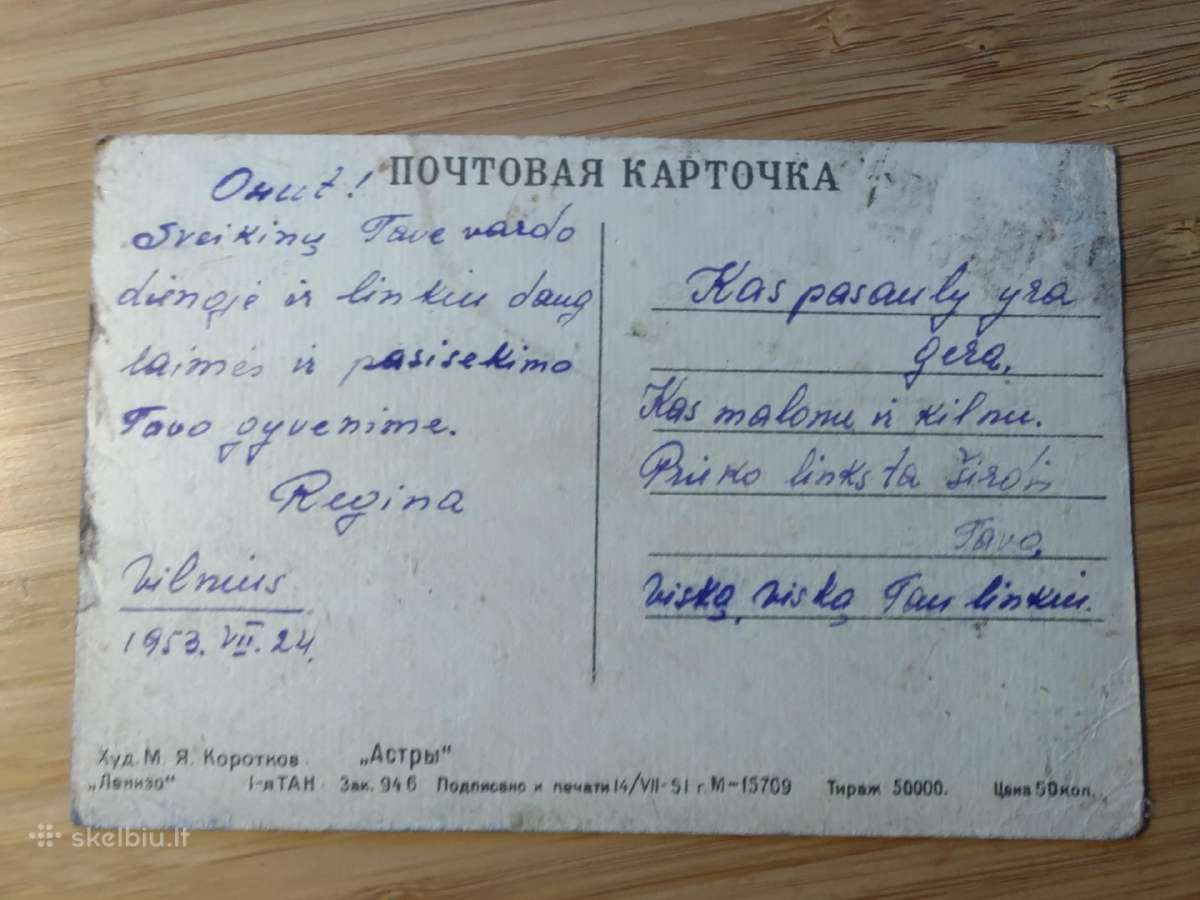 ПОЧТОВАЯ КАРТОЧКА
Онut!
Sveikinų Tave vardo
dienoje ir linkiu daug
laimės ir pasisekimo
Tavo gyvenime.
Regina
Vilnius
1953.VII.24.
Kas pasauly yra
gera,
Kas malonu ir kilnu.
Prie ko linksta širdis
Tavo,
Viską, viską Tau linkiu.
Худ. М. Я. Коротков. „Астры"
„Ленизо" 1-я ТАН Зак. 946 Подписано к печати 14/VII-51 г. М-15709 Тираж 50000. Цена 50 коп.
skelbiu.lt